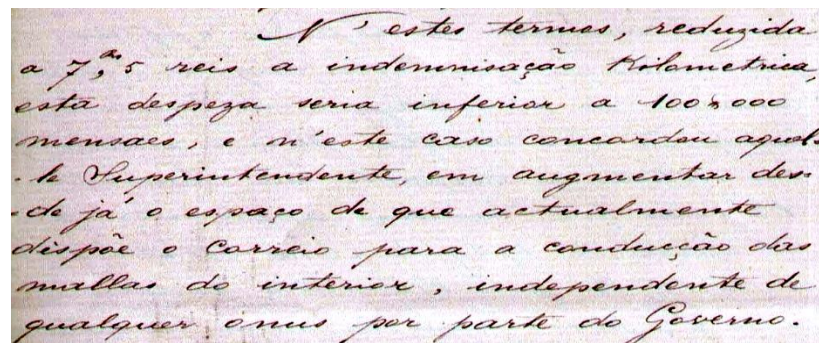 N'estes termos, reduzida
a 7,rs 5 reis a indemnisação Kilometrica,
esta despeza seria inferior a 100$000
mensaes, e n'este caso concordou aquel-
-le Superintendente, em augmentar des-
-de já o espaço de que actualmente
dispõe o Correio para a conducção das
mallas do interior, independente de
qualquer onus por parte do Governo.